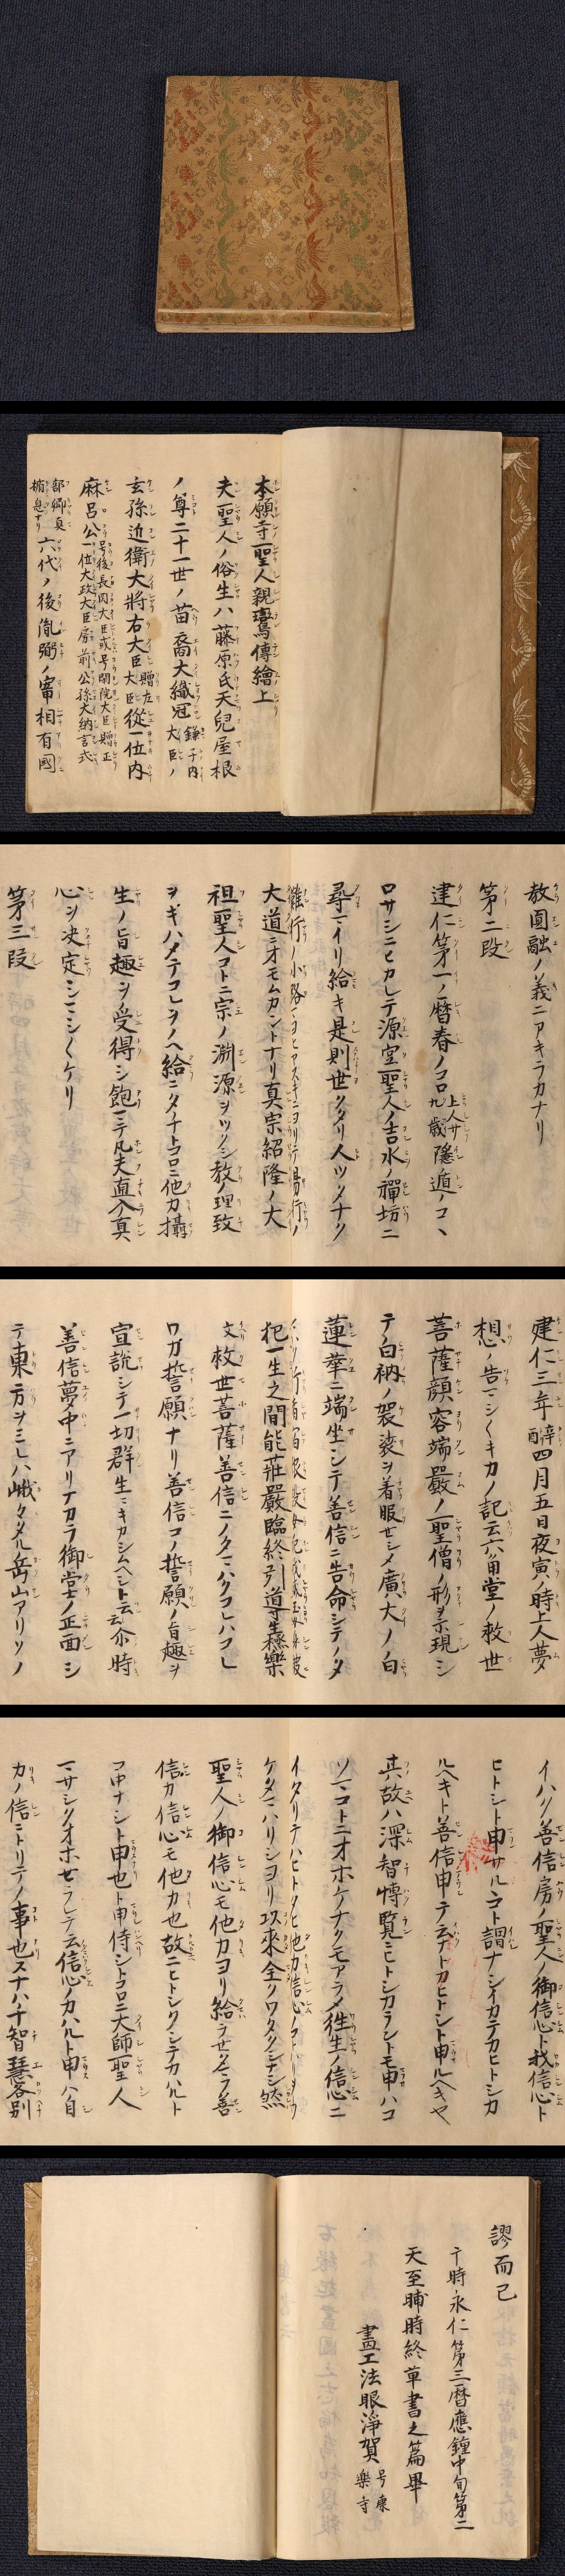 本願寺聖人親鸞傳繪上
夫聖人ノ俗生ハ藤原氏天兒屋根
ノ尊二十一世ノ苗裔大織冠鎌子内大臣ノ
玄孫近衛大將右大臣贈左大臣從一位内
麻呂公号後長岡大臣或号閑院大臣贈正一位太政大臣房前公孫大納言式
部卿真楯息ナリ六代ノ後胤弼ノ宰相有國
教圓融ノ義ニアキラカナリ
第二段
建仁第一ノ暦春ノコロ上人廿九歳隱遁ノコヽ
ロサシニヒカレテ源空聖人ノ吉水ノ禪坊ニ
尋マイリ給キ是則世クタリ人ツタナク
難行ノ小路マヨヒヤスキニヨリテ易行ノ
大道ニオモムカントナリ真宗紹隆ノ大
祖聖人コトニ宗ノ淵源ヲツクシ教ノ理致
ヲキハメテコレヲノヘ給ニタチトコロニ他力攝
生ノ旨趣ヲ受得シ飽マテ凡夫直入ノ真
心ヲ決定シマシ〱ケリ
第三段
建仁三年癸亥四月五日夜寅ノ時上人夢
想ノ告マシ〱キカノ記云六角堂ノ救世
菩薩顔容端嚴ノ聖僧ノ形ヲ示現シ
テ白衲ノ袈裟ヲ着服セシメ廣大ノ白
蓮華ニ端坐シテ善信ニ告命シテノタ
犯一生之間能莊嚴臨終引導生極樂
文救世菩薩善信ニノタマハクコレハコレ
ワカ誓願ナリ善信コノ誓願ノ旨趣ヲ
宣説シテ一切群生ニキカシムヘシト云云尒時
善信夢中ニアリナカラ御堂ノ正面シ
テ東方ヲミレハ峨々タル岳山アリソノ
イハク善信房ノ聖人ノ御信心ト我信心ト
ヒトシト申サルヽコト謂ナシイカテカヒトシカ
ルヘキト善信申テ云ナトカヒトシト申サルヘキヤ
其故ハ深智博覽ニヒトシカラントモ申ハコ
ソマコトニオホケナクモアラメ往生ノ信心ニ
イタリテハヒトタヒ他力信心ノコトハリヲウ
ケタマハリシヨリ以來全クワタクシナシ然
聖人ノ御信心モ他力ヨリ給ラセタマフ善
信カ信心モ他力也故ニヒトシクシテカハルト
コロナシト申也ト申侍シトコロニ大師聖人
マサシクオホセラレテ云信心ノカハルト申ハ自
力ノ信ニトリテノ事也スナハチ智慧各別
謬而已
于時永仁第三暦應鐘中旬第二
天至晡時終草書之篇畢
畫工法眼淨賀号康樂寺